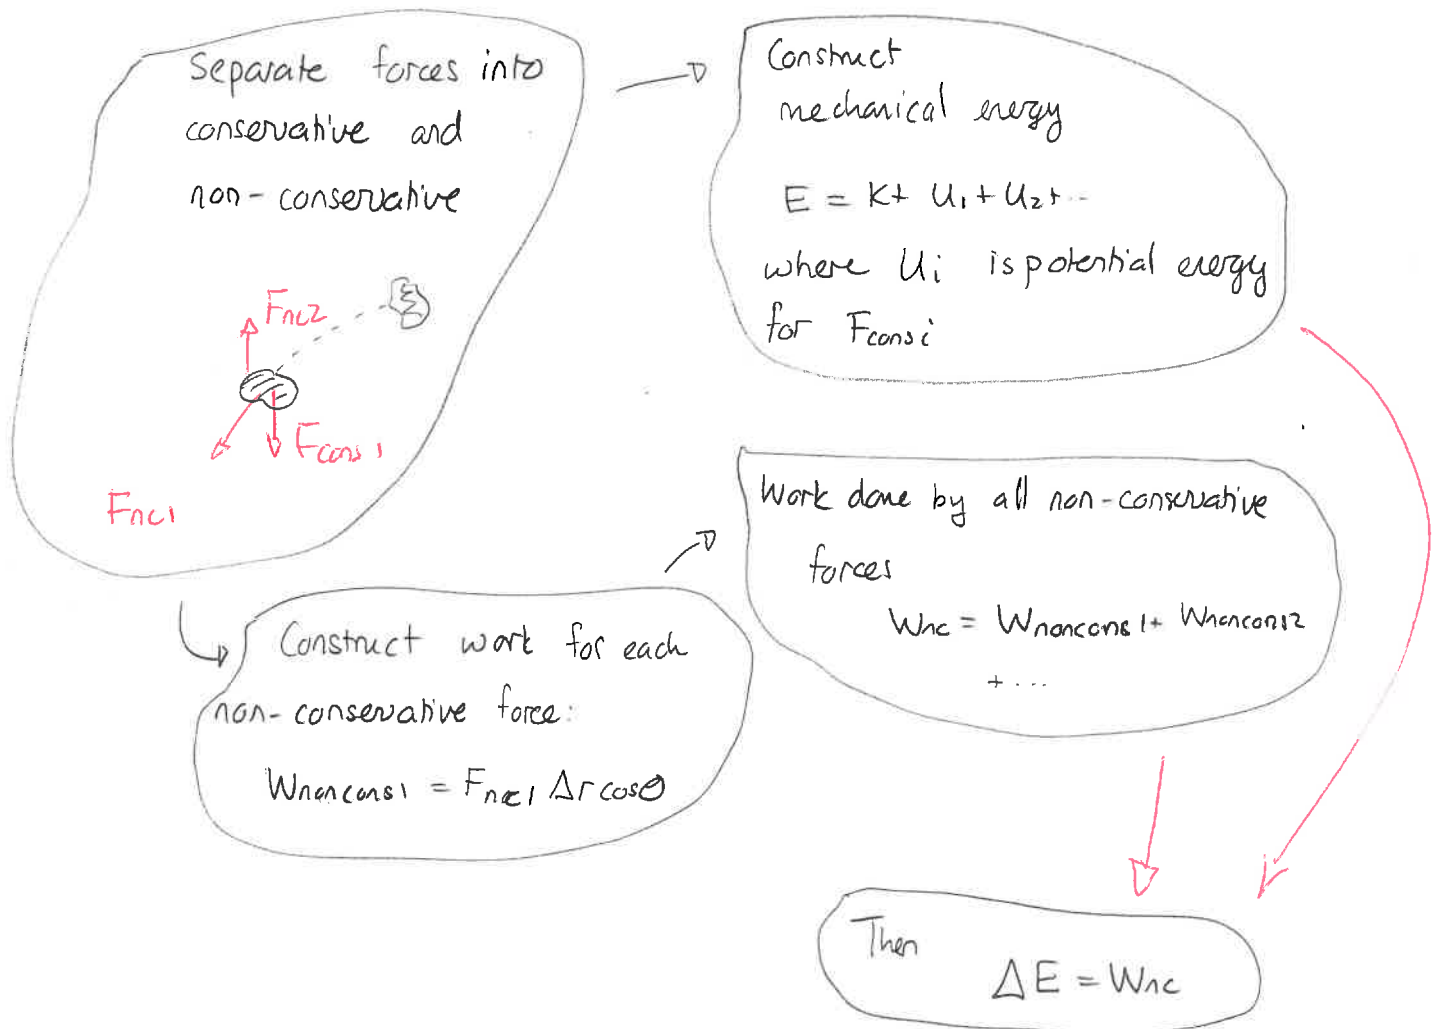 Separate forces into
conservative and
non-conservative
Fnc2
Fcons1
Fnc1
Construct
mechanical energy
E = K + U₁ + U₂ + ...
where Ui is potential energy
for Fcons i
Construct work for each
non-conservative force:
Wnoncons1 = Fnc1 Δr cosθ
Work done by all non-conservative
forces
Wnc = Wnoncons1 + Wnoncons2
+ ...
Then
ΔE = Wnc